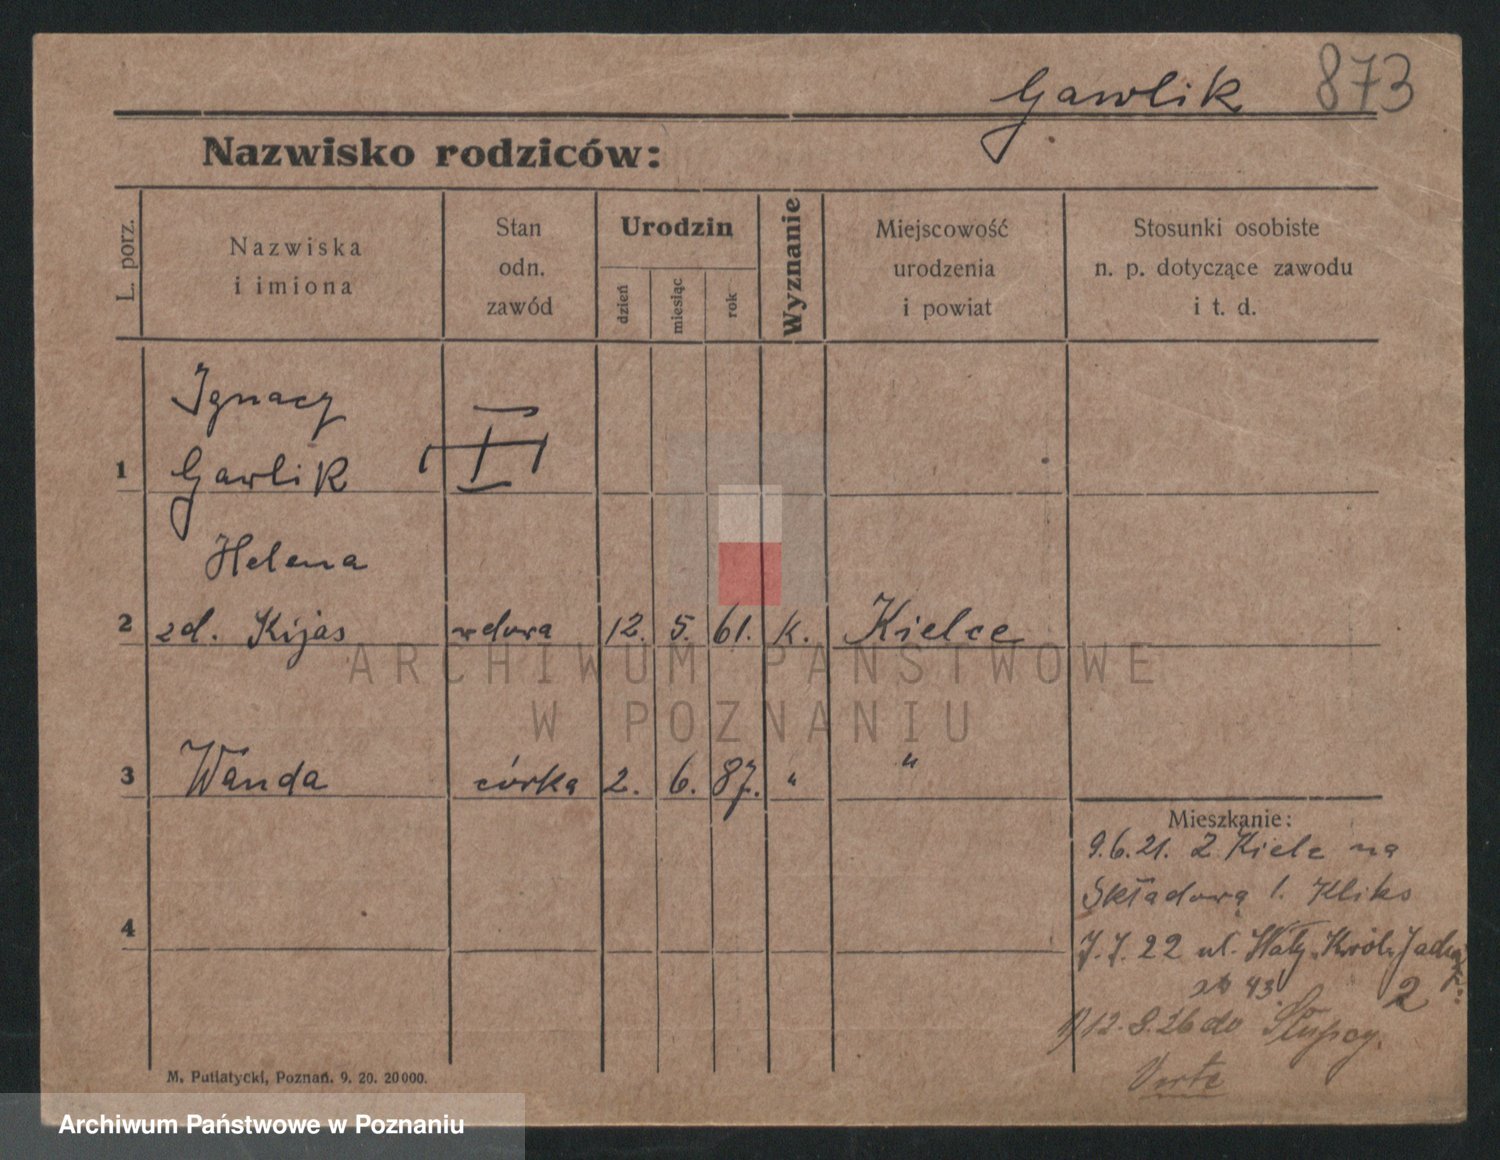 Gawlik 873
Nazwisko rodziców:
L. porz.
Nazwiska
i imiona
Stan
odn.
zawód
Urodzin
dzień
miesiąc
rok
Wyznanie
Miejscowość
urodzenia
i powiat
Stosunki osobiste
n. p. dotyczące zawodu
i t. d.
Ignacy
1 Gawlik
Helena
2 zd. Kijas wdowa 12. 5. 61. k. Kielce
ARCHIWUM PAŃSTWOWE
W POZNANIU
3 Wanda córka 2. 6. 87. " "
Mieszkanie:
9.6.21. Z Kielc na
Składową 1. Kliks
4
7.7.22 ul. Wały Król. Jadwi
43 2
1) 12.8.26 do Słupcy.
Verte
M. Putiatycki, Poznań. 9. 20. 20 000.
Archiwum Państwowe w Poznaniu